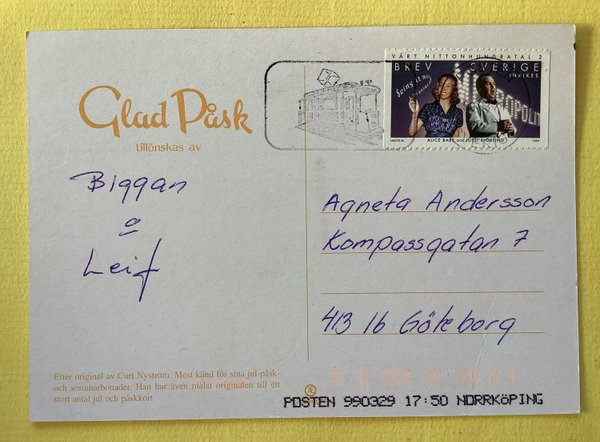 Glad Påsk
tillönskas av
Biggan
o
Leif
VÅRT NITTONHUNDRATAL 2
BREV SVERIGE
INRIKES
Swing it
ALICE BABS
1999
Agneta Andersson
Kompassgatan 7
413 16 Göteborg
Efter original av Curt Nyström. Mest känd för sina jul-påsk-
och sommarbonader. Han har även målat originalen till ett
stort antal jul och påskkort
POSTEN 990329 17:50 NORRKÖPING